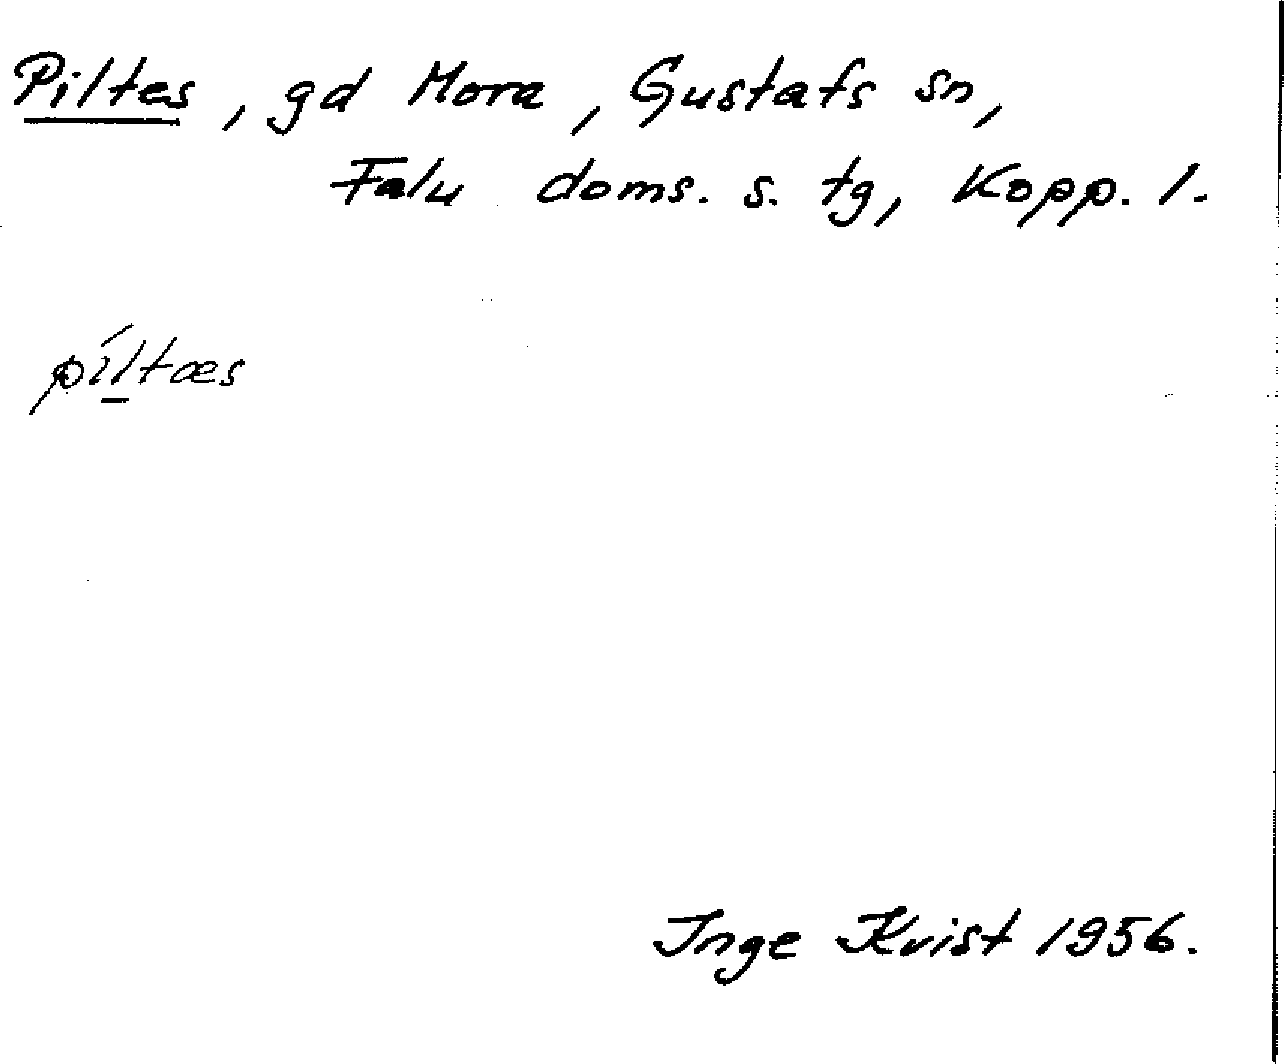 Piltes, gd Mora, Gustafs sn,
Falu doms. s. tg, Kopp. l.
píl̲tæs
Inge Kvist 1956.